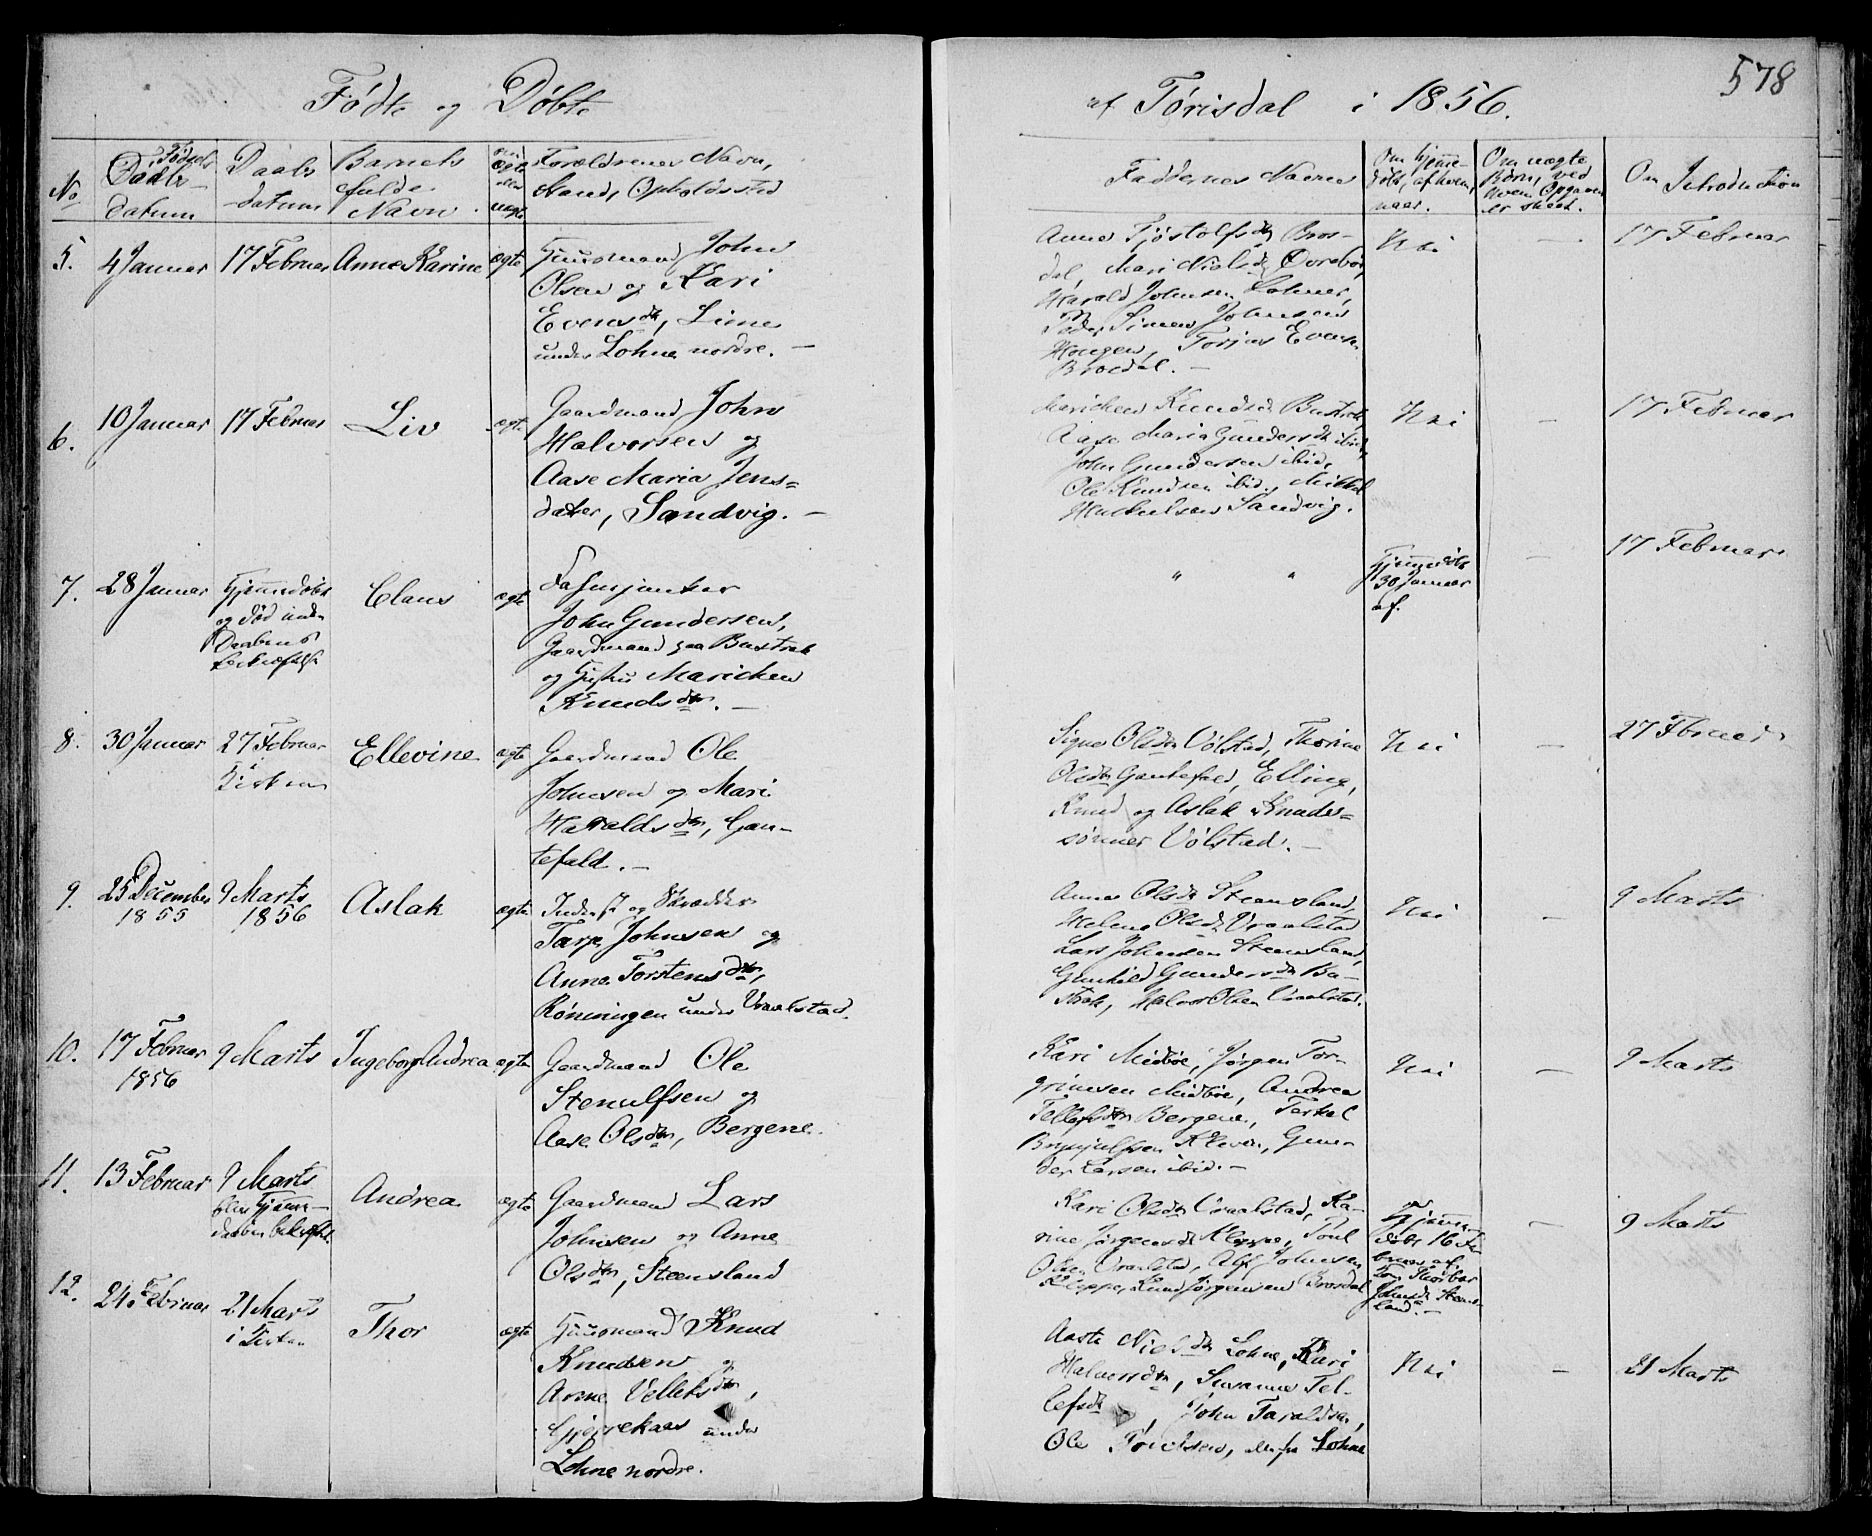 578
Fødte og Døbte
af Tørisdal i 1856.
No
Fødsels-
datum
Daabs
-datum
Barnets
fulde
Navn.
om
ægte
eller
uægte
Forældrenes Navn,
Stand, Opholdssted
Faddernes Navne
Om hjemme-
døbt, af hvem,
naar.
Om uægte
Børn, ved
hvem Opgaven
er skeet.
Om Introduction
5.
4 Januar
17 Februar
Anne Karine
ægte
Huusmand John
Olsen og Kari
Evensdtr, Lime
under Lohne nordre. —
Anne Tjøstolfsdtr Bros-
dal, Mari Nielsdtr
Harald Johnsen Lohne,
Peder Simen Johnsen
Haugen, Torjus Evensen
Brosdal. —
Nei
—
17 Februar
6.
10 Januar
17 Februar
Liv
ægte
Gaardmand John
Halvorsen og
Aase Maria Jens-
datter, Sandvig. —
Marichen Knudsdtr Bustrak
Aase Maria Gundersdtr ibid,
John Gundersen ibid,
Ole Knudsen ibid., Mikkel
Sandvig.
Nei
—
17 Februar
7.
28 Januar
Hjemmedøbt
og død inden
Daabens
Bekræftelse
Claus
ægte
Fahnejunker
John Gundersen,
Gaardmand paa Bustrak
og Hustru Marichen
Knudsdtr. —
" "
Hjemmedøbt
30 Januar
af.
—
17 Februar
8.
30 Januar
27 Februar
i
Kirken
Ellevine
ægte
Gaardmand Ole
Johnsen og Mari
Haraldsdtr, Gau-
tefald. —
Signe Olsdtr Vølstad, Thorine
Olsdtr Gautefald, Elling,
Knud og Aslak Knuds-
sønner Vølstad. —
Nei
—
27 Februar
9.
25 December
1855
9 Marts
1856
Aslak
ægte
Inderst og Skrædder
Tarje Johnsen og
Anne Torstensdtr,
Rønningen under Vraalstad.
Anne Olsdtr Steensland,
Helene Olsdtr Vraalstad
Lars Johnsen Steensland,
Gunhild Gundersdtr Bu-
strak, Halvor Olsen Vraalstad.
Nei
—
9 Marts
10.
17 Februar
1856
9 Marts
Ingeborg Andrea
ægte
Gaardmand Ole
Stenulfsen og
Aase Olsdtr, Bergene.
Kari Midbøe, Jørgen Tor-
grimsen Midbøe, Andrea
Tellefsdtr Bergene, Terkel
Brynjulfsen Kleven, Gun-
der Larsen ibid. —
Nei
—
9 Marts
11.
13 Februar
9 Marts
blev Hjemme-
daaben bekræftet
Andrea
ægte
Gaardmand Lars
Johnsen og Anne
Olsdtr, Steensland
Kari Olsdtr Vraalstad, Ka-
rine Jørgensdtr Kleppe, Poul
Olsen Vraalstad, Alf Johnsen
Kleppe, Knud Jørgensen Brosdal
Hjemme-
døbt 16 Fe-
bruar af
Johnsdtr Steens-
land. —
—
9 Marts
12.
24 Februar
21 Marts
i Kirken
Thor
ægte
Huusmand Knud
Knudsen og
Anne Vetlesdtr,
Gjerrekaas under
Lohne nordre.
Aaste Nielsdtr Lohne, Kari
Halvorsdtr, Susanne Tel-
lefsdtr, John Taraldsen,
Ole, alle fra Lohne
Nei
—
21 Marts